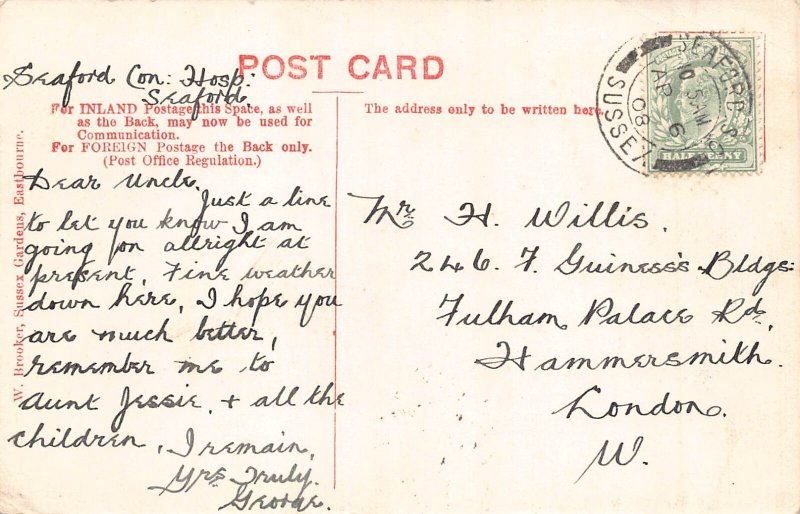 POST CARD
Seaford Con: Hosp:
Seaford
For INLAND Postage this Space, as well
as the Back, may now be used for
Communication.
For FOREIGN Postage the Back only.
(Post Office Regulation.)
Dear Uncle,
Just a line
to let you know I am
going on allright at
present, Fine weather
down here, I hope you
are much better,
remember me to
Aunt Jessie, + all the
children, I remain,
Yrs Truly.
George.
W. Brooker, Sussex Gardens, Eastbourne.
The address only to be written here.
Mr H. Willis.
246. F. Guiness's Bldgs:
Fulham Palace Rd.
Hammersmith.
London.
W.
SEAFORD S.O.
AP 6
08
SUSSEX
HALFPENNY